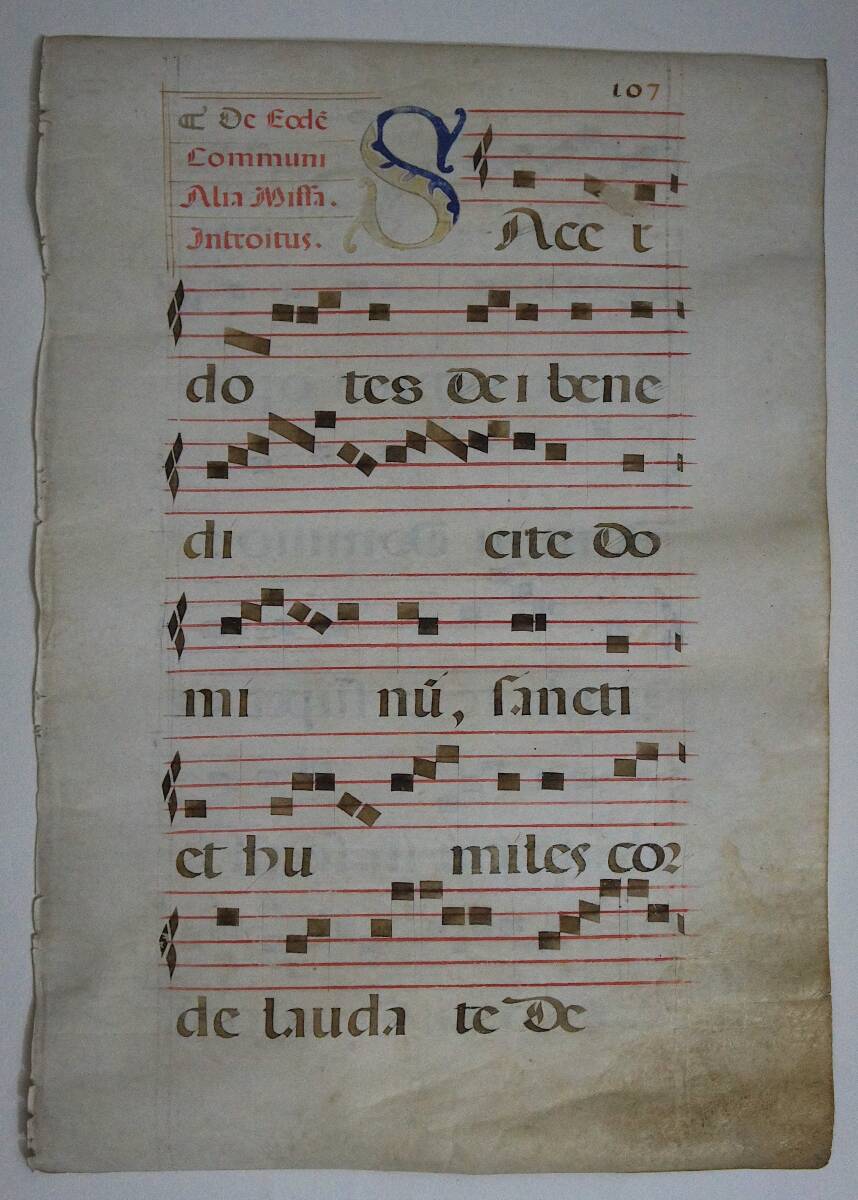 107
¶ De Eodē
Communi
Alia Missa.
Introitus.
SAcer
do tes Dei bene
di cite Do
mi nū, sancti
et hu miles cor
de lauda te De